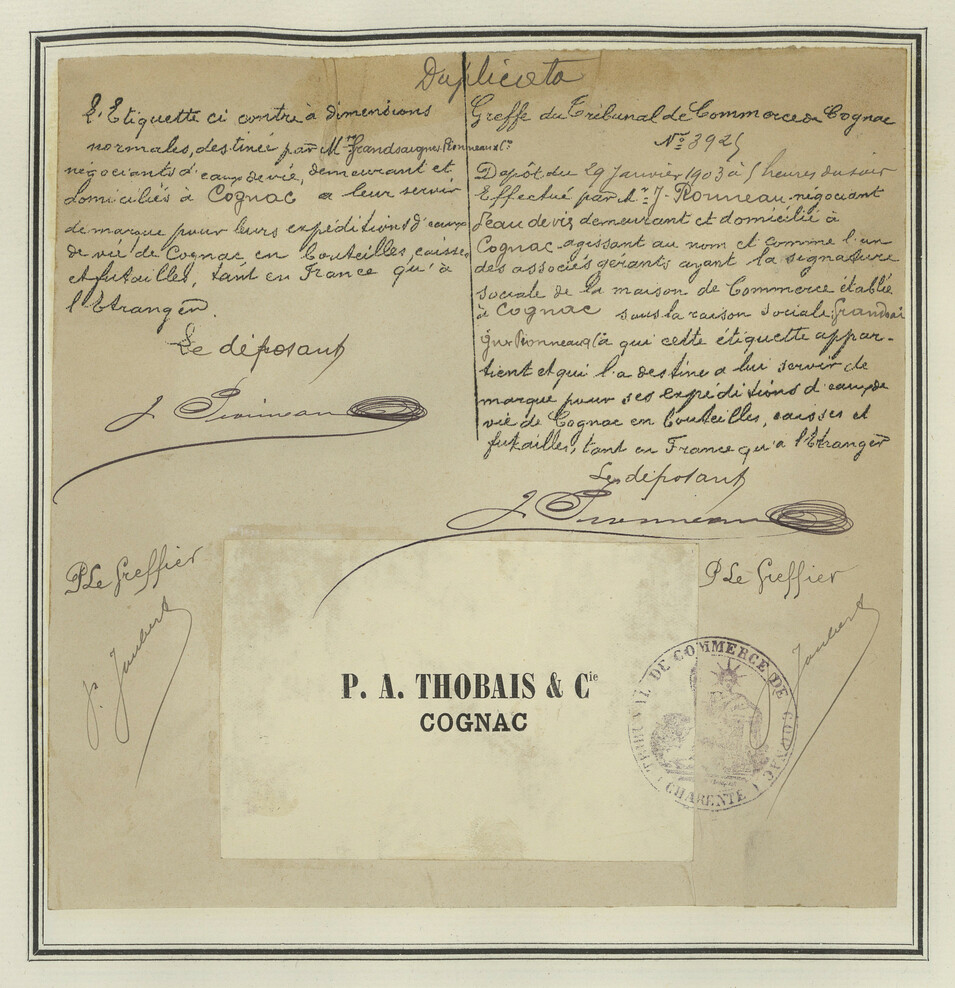 Duplicata
L'Etiquette ci contre à dimensions
normales, destinée par Mrs Grandsaignes Pionneau & Cie
négociants d'eaux de vie, demeurant et
domiciliés à Cognac a leur servir
de marque pour leurs expéditions d'eaux
de vie de Cognac en bouteilles, caisses
et futailles, tant en France qu'à
l'Etranger.
Le déposant
J. Pionneau
Greffe du Tribunal de Commerce de Cognac
No 3925
Dépôt du 29 Janvier 1903 à 5 heures du soir
Effectué par Mr J. Pionneau négociant
d'eau de vie demeurant et domicilié à
Cognac agissant au nom et comme l'un
des associés gérants ayant la signature
sociale de la maison de Commerce établie
à Cognac sous la raison sociale Grandsai
gnes Pionneau & Cie à qui cette étiquette appar-
tient et qui l'a destine a lui servir de
marque pour ses expéditions d'eaux de
vie de Cognac en bouteilles, caisses et
futailles, tant en France qu'à l'Etranger
Le déposant
J. Pionneau
P Le Greffier
P. Jaubert
P Le Greffier
Jaubert
P. A. THOBAIS & Cie
COGNAC
TRIBUNAL DE COMMERCE DE COGNAC
CHARENTE